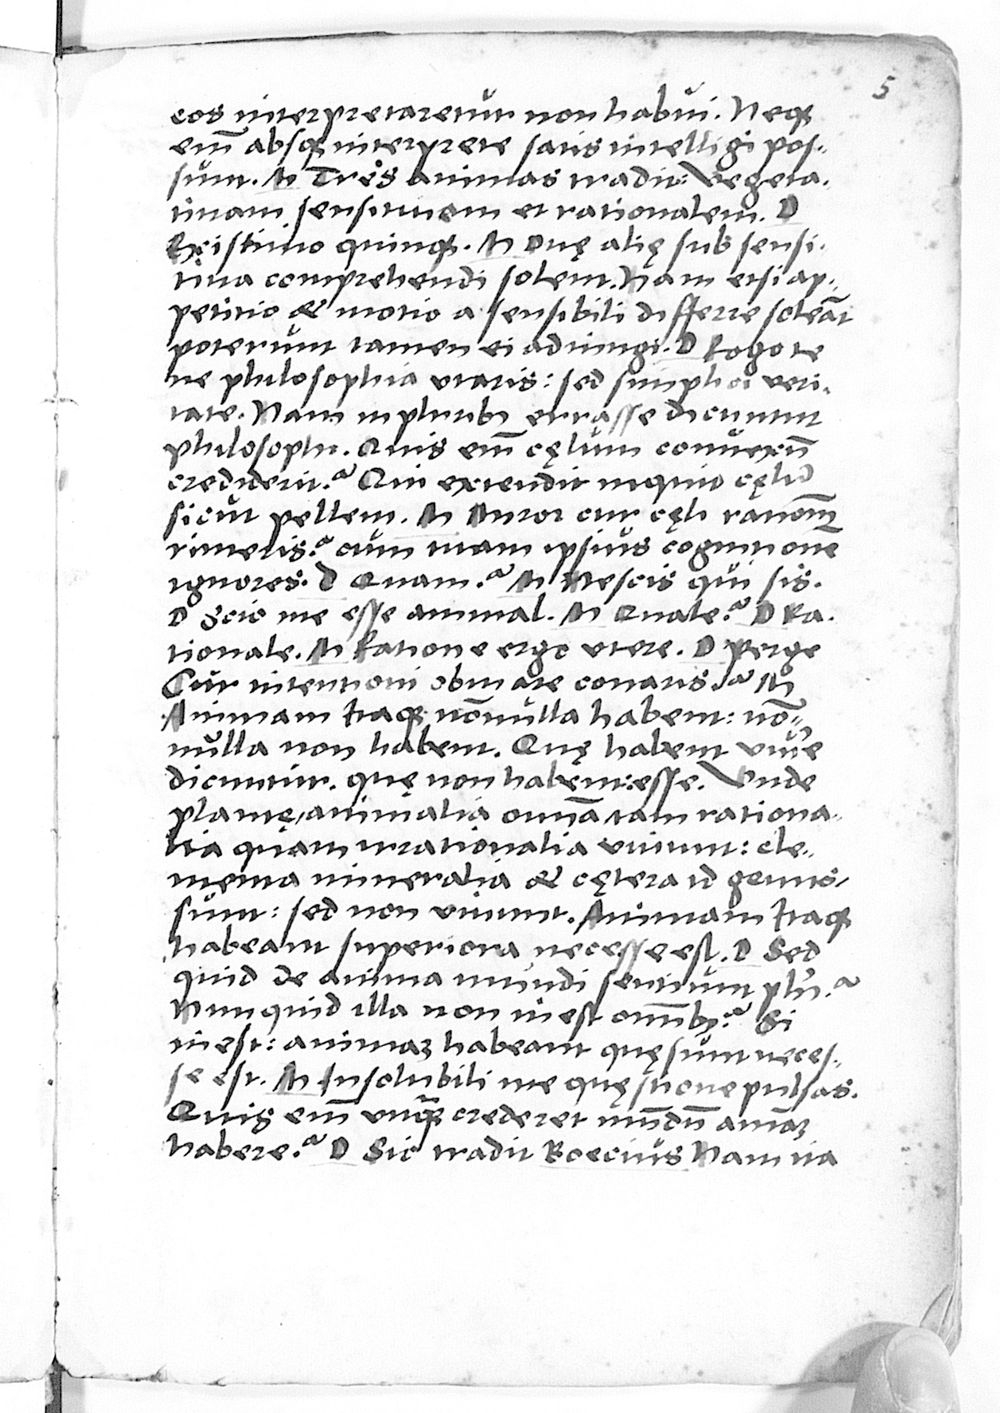 5
eos interpretaretur non habui. Neqȝ
em̄ absqȝ interprete satis intelligi pos-
sunt. M Tres animas tradit: Vegeta-
tiuam sensitiuam et rationalem. D
Existimo quinqȝ. M Duę alię sub sensi-
tiua comprehendi solent. Nam etsi ap-
petitio & motio a sensibili differre soleāt
poterunt tamen ei adiungi. D Rogo te
ne philosophia vtaris: sed simplici veri-
tate. Nam in pluribȝ errasse dicuntur
philosophi. Quis em̄ cęlum conuexū
crediderit? Qui extendit inquit cęlū
sicut pellem. M Miror cur cęli rationē
rimeris? cum tuam ipsius cognitionē
ignores. D Quam? M Nescis qui sis.
D Scio me esse animal. M Quale? D Ra-
tionale. M Ratione ergo vtere. D Perge
Cur intentioni obuiare conaris? M
Animam itaqȝ nōnulla habent: nō-
nulla non habent. Quę habent viuēre
dicuntur. quę non habent: esse. Vnde
plantę, animalia omīa tam rationa-
lia quam irrationalia viuunt: ele-
menta mineralia & cętera id genus,
sunt: sed non viuunt. Animam itaqȝ
habeant superiora necesse est. D Sed
quid de anima mundi sentiunt phī?
Nunquid illa non inest omībȝ? Si
inest: animaȝ habeant quę sunt neces-
se est. M Insolubili me quęstione pulsas.
Quis em̄ vnqȝ crederet mūdū aīaȝ
habere? D Sic tradit Boecius Nam ita